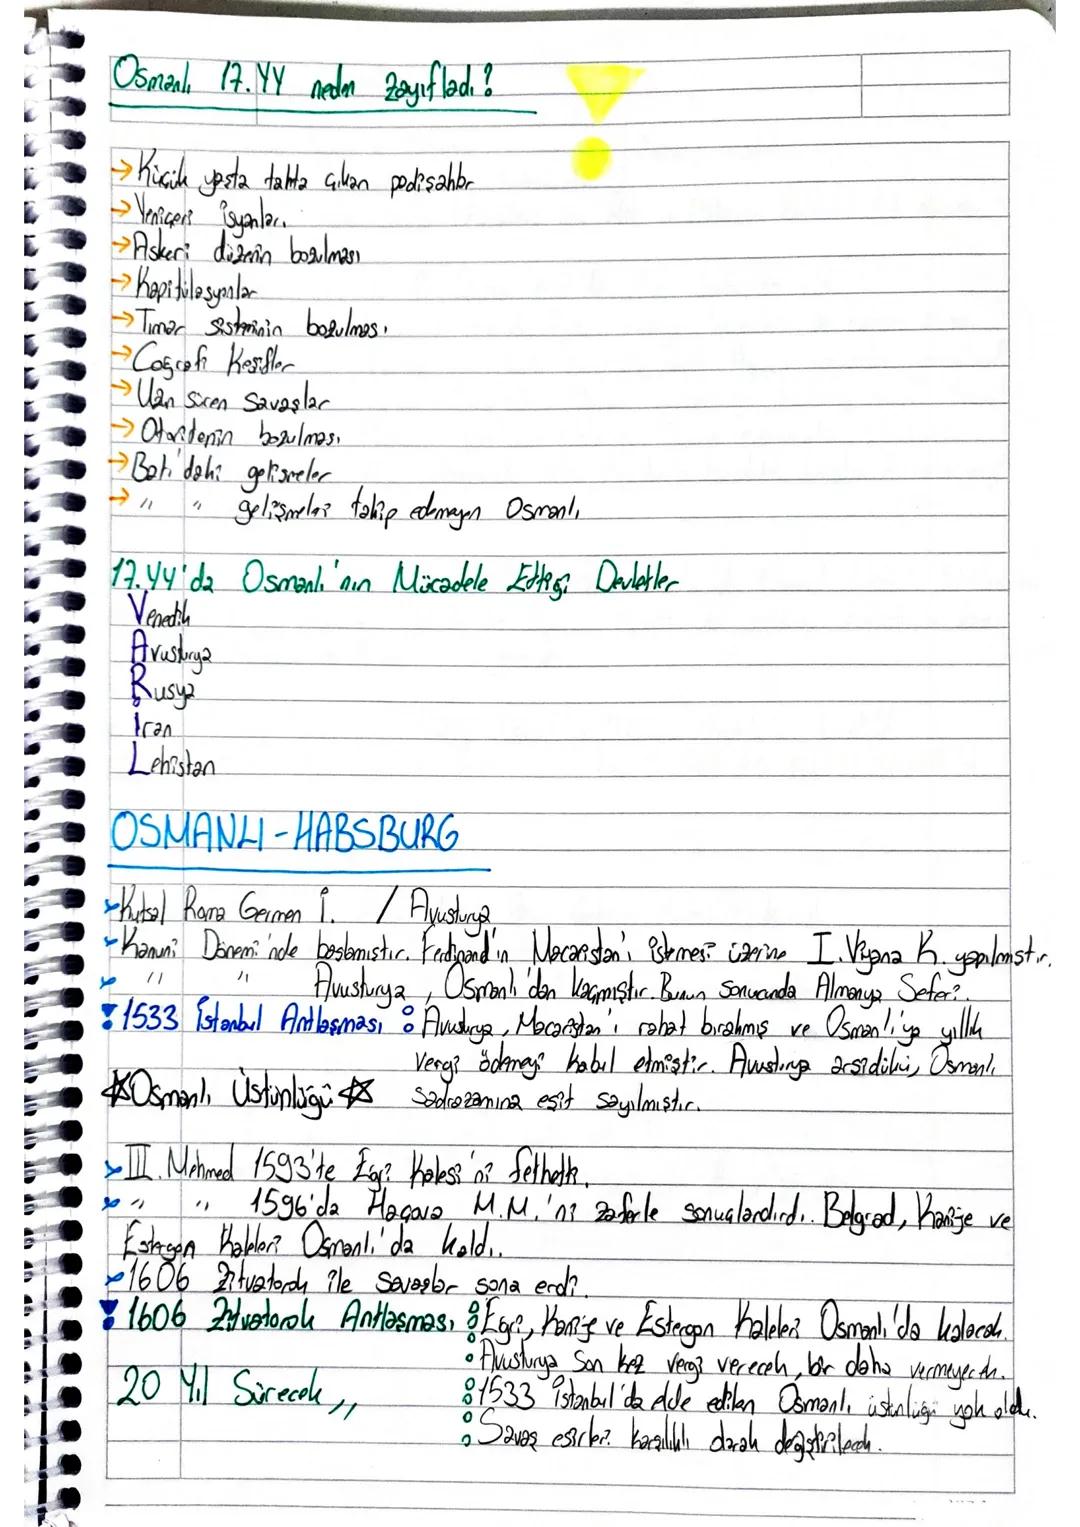 Osmanlı 17.YY neden zayıfladı?
→ Küçük yaşta tahta çıkan padişahlar
→ Yeniçeri isyanları
→ Askeri düzenin bozulması
→ Kapitülasyonlar
→ Tımar sisteminin bozulması
→ Coğrafi Keşifler
→ Uzun süren Savaşlar
→ Otoritenin bozulması
→ Batı'daki gelişmeler
→ " " gelişmeleri takip edemeyen Osmanlı
17.YY'da Osmanlı'nın Mücadele Ettiği Devletler
Venedik
Avusturya
Rusya
İran
Lehistan
OSMANLI-HABSBURG
Kutsal Roma Germen İ. / Avusturya
Kanuni Dönemi'nde başlamıştır. Ferdinand'ın Macaristan'ı istemesi üzerine I. Viyana K. yapılmıştır.
" " Avusturya, Osmanlı'dan kaçmıştır. Bunun sonucunda Almanya Seferi.
1533 İstanbul Antlaşması: Avusturya, Macaristan'ı rahat bırakmış ve Osmanlı'ya yıllık
vergi ödemeyi kabul etmiştir. Avusturya arşidükü, Osmanlı
☆Osmanlı Üstünlüğü☆ sadrazamına eşit sayılmıştır.
III. Mehmed 1593'te Eğri Kalesi'ni fethetti.
" " 1596'da Haçova M.M.'ni zaferle sonuçlandırdı. Belgrad, Kanije ve
Estergon Kaleleri Osmanlı'da kaldı.
1606 Zitvatorok ile savaşlar sona erdi.
1606 Zitvatorok Antlaşması: Eğri, Kanije ve Estergon Kaleleri Osmanlı'da kalacak.
Avusturya son kez vergi verecek, bir daha vermeyecek.
20 Yıl Sürecek,, 1533 İstanbul'da elde edilen Osmanlı üstünlüğü yok oldu.
Savaş esirleri karşılıklı olarak değiştirilecek.